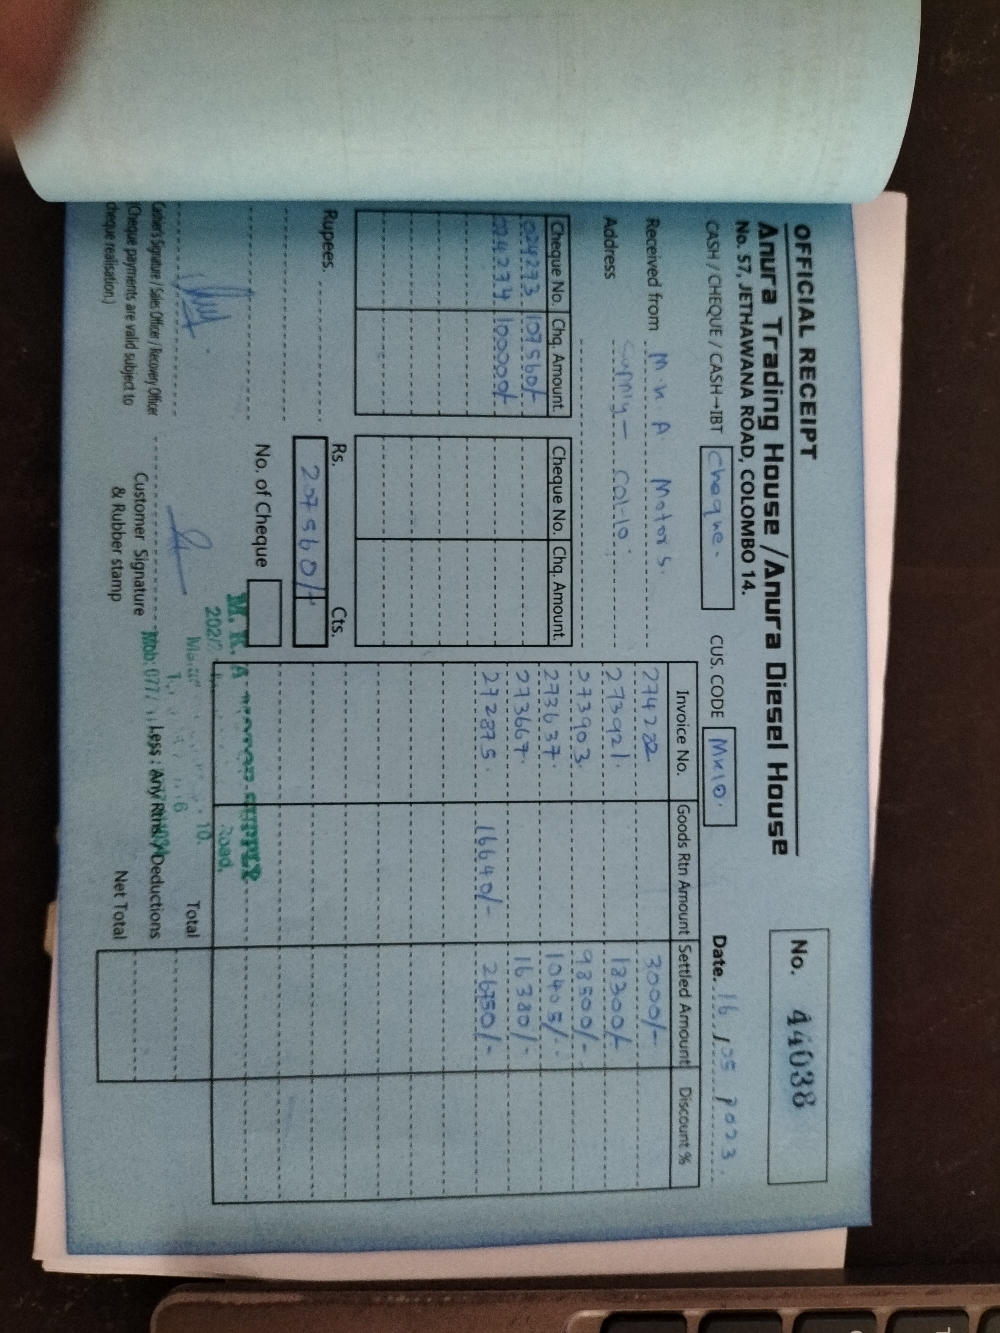 OFFICIAL RECEIPT
Anura Trading House /Anura Diesel House
No. 57, JETHAWANA ROAD, COLOMBO 14.
No. 44038
CASH / CHEQUE / CASH→IBT Cheque. CUS. CODE MK10. Date. 16/05 2023.
Received from M. K. A Motors.
Address Supply - Col-10.
Cheque No. Chq. Amount. Cheque No. Chq. Amount.
024273 107560/-
024274 100000/-
Invoice No. Goods Rtn Amount Settled Amount Discount %
274222 3000/-
273921.
273903. 98500/-
273637. 10405/-
273667. 16380/-
272875. 16640/- 26750/-
Rupees.
Rs. Cts.
207560/-
No. of Cheque
Total
Less : Any Rtns / Deductions
Net Total
Cashier's Signature / Sales Officer / Recovery Officer
(Cheque payments are valid subject to
cheque realisation.)
Customer Signature
& Rubber stamp
M. K. A
Road,
10.
Mob: 077